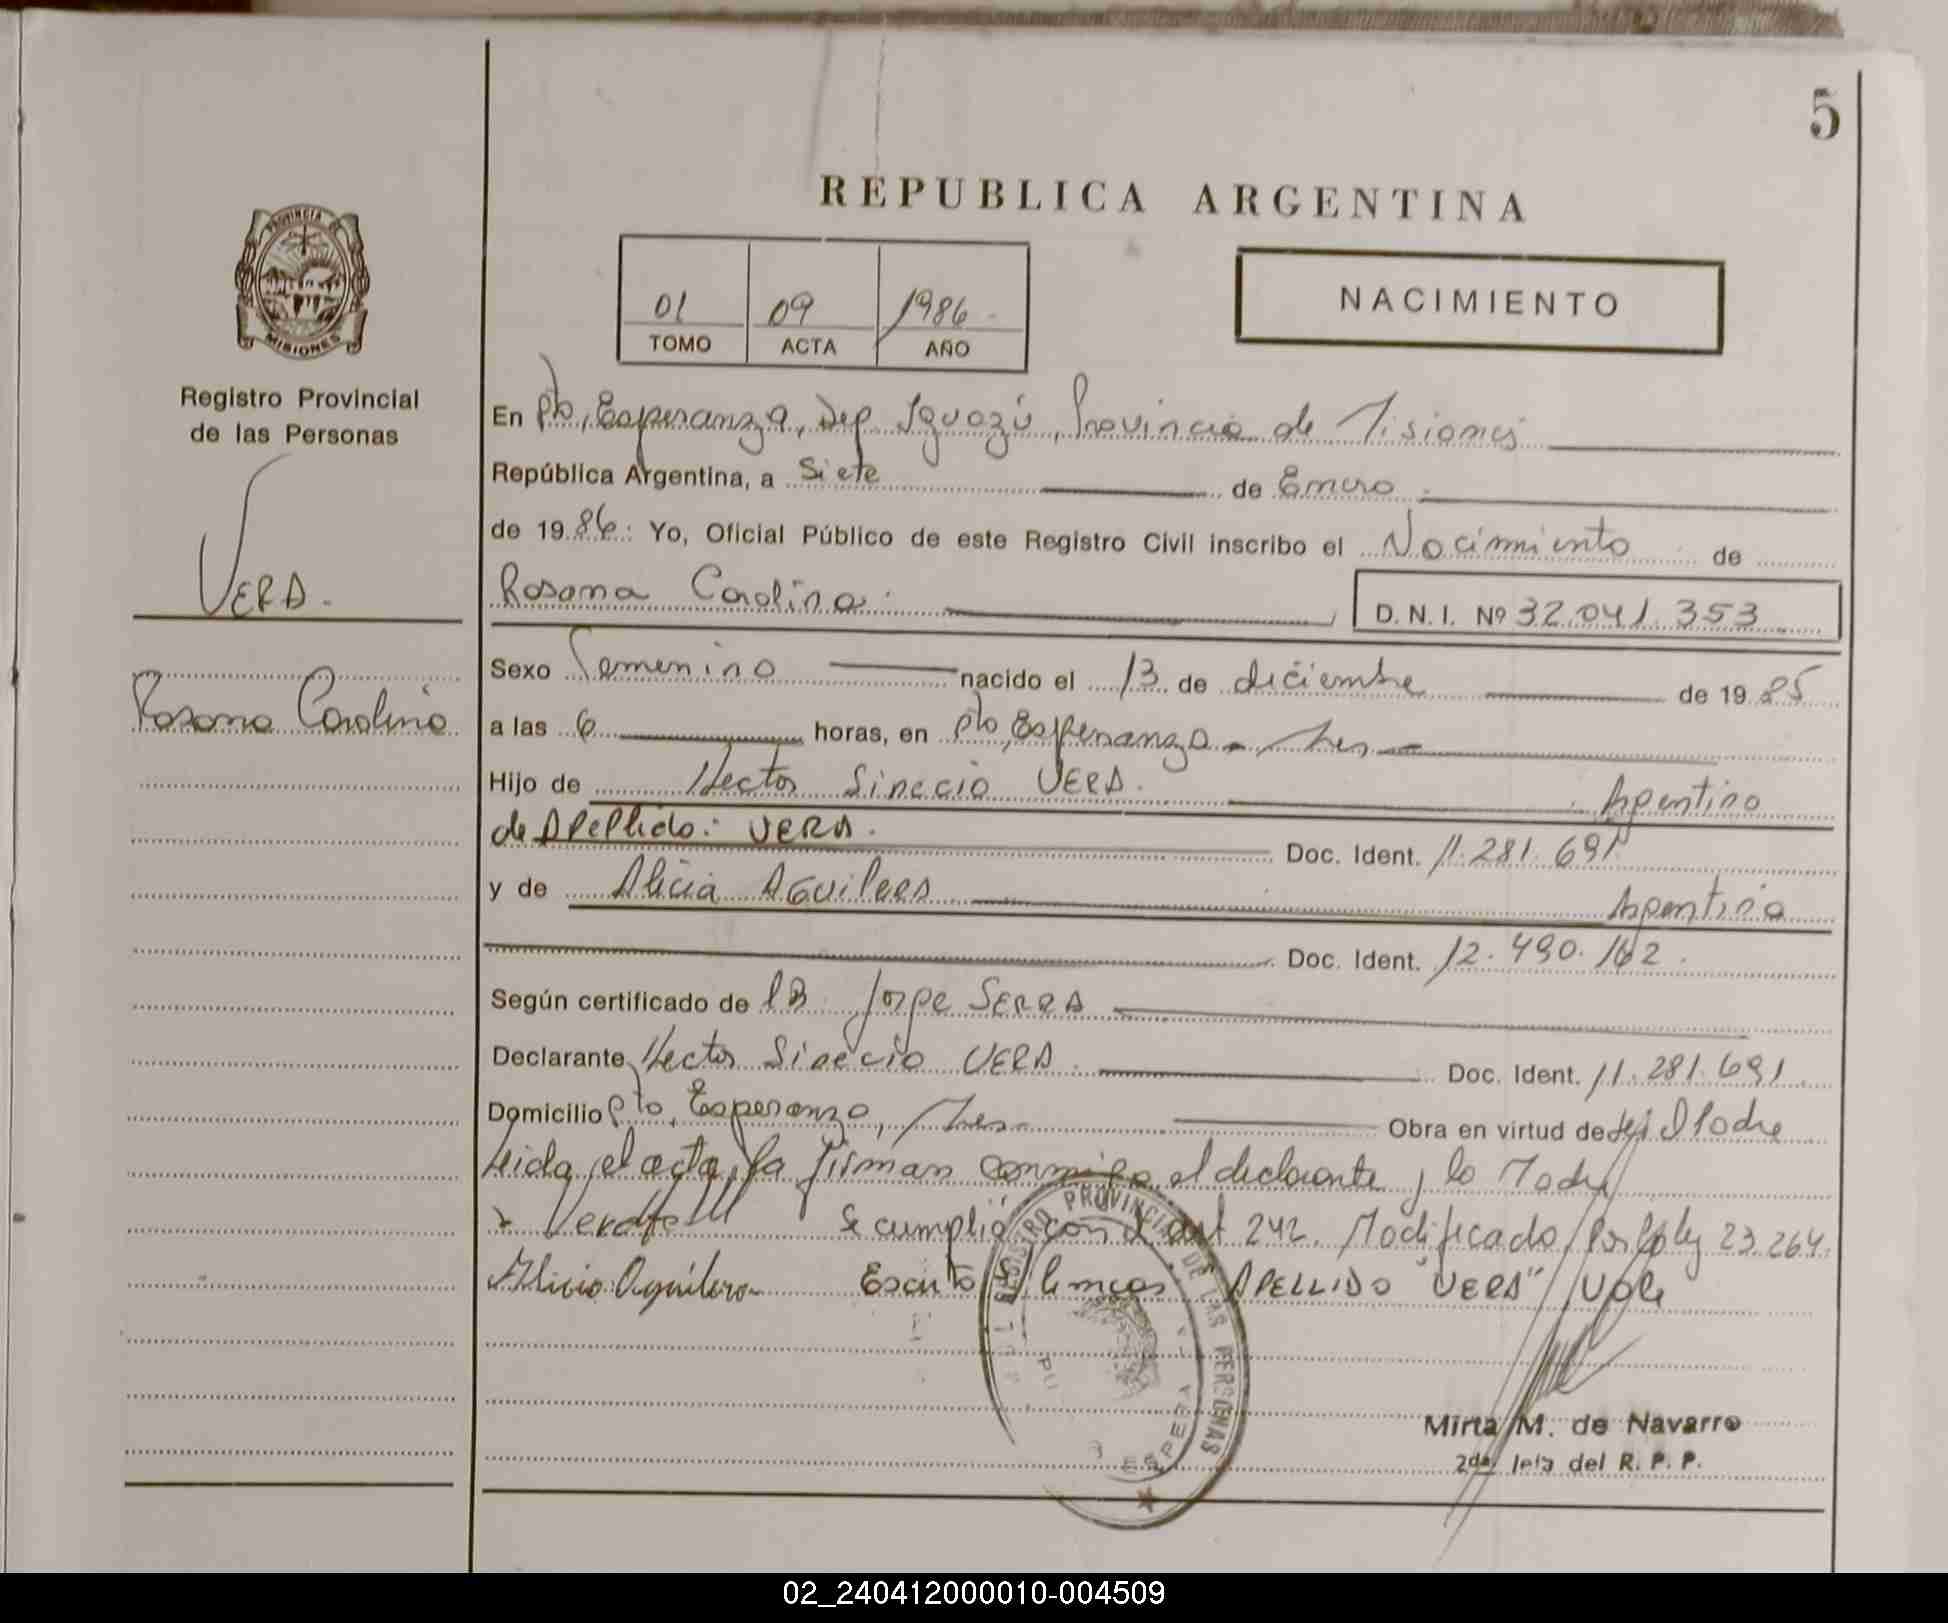 5
REPUBLICA ARGENTINA
PROVINCIA
MISIONES
Registro Provincial
de las Personas
VERA.
Rosana Carolina
01 09 1986
TOMO ACTA AÑO
NACIMIENTO
En Pto, Esperanza, Dep. Iguazú, Provincia de Misiones
República Argentina, a Siete de Enero
de 1986: Yo, Oficial Público de este Registro Civil inscribo el Nacimiento de
Rosana Carolina. D.N.I. Nº 32.041.353
Sexo Femenino nacido el 13 de diciembre de 1985
a las 6 horas, en Pto, Esperanza - Mnes -
Hijo de Hector Sinecio VERA. Argentino
de Apellido: VERA. Doc. Ident. 11.281.691
y de Alicia Aguilera Argentina
Doc. Ident. 12.490.162.
Según certificado de Jorge SERRA
Declarante Hector Sinecio VERA. Doc. Ident. 11.281.691
Domicilio Pto, Esperanza, Mnes. Obra en virtud de ser el Padre
Leida el acta, la firman conmigo, el declarante y la Madre
Se cumplió con el art 242. Modificado por la ley 23.264.
Alicia Aguilera Escrito APELLIDO "VERA" Vale
REGISTRO PROVINCIAL DE LAS PERSONAS
Mirta M. de Navarro
2da Jefa del R. P. P.
02_240412000010-004509